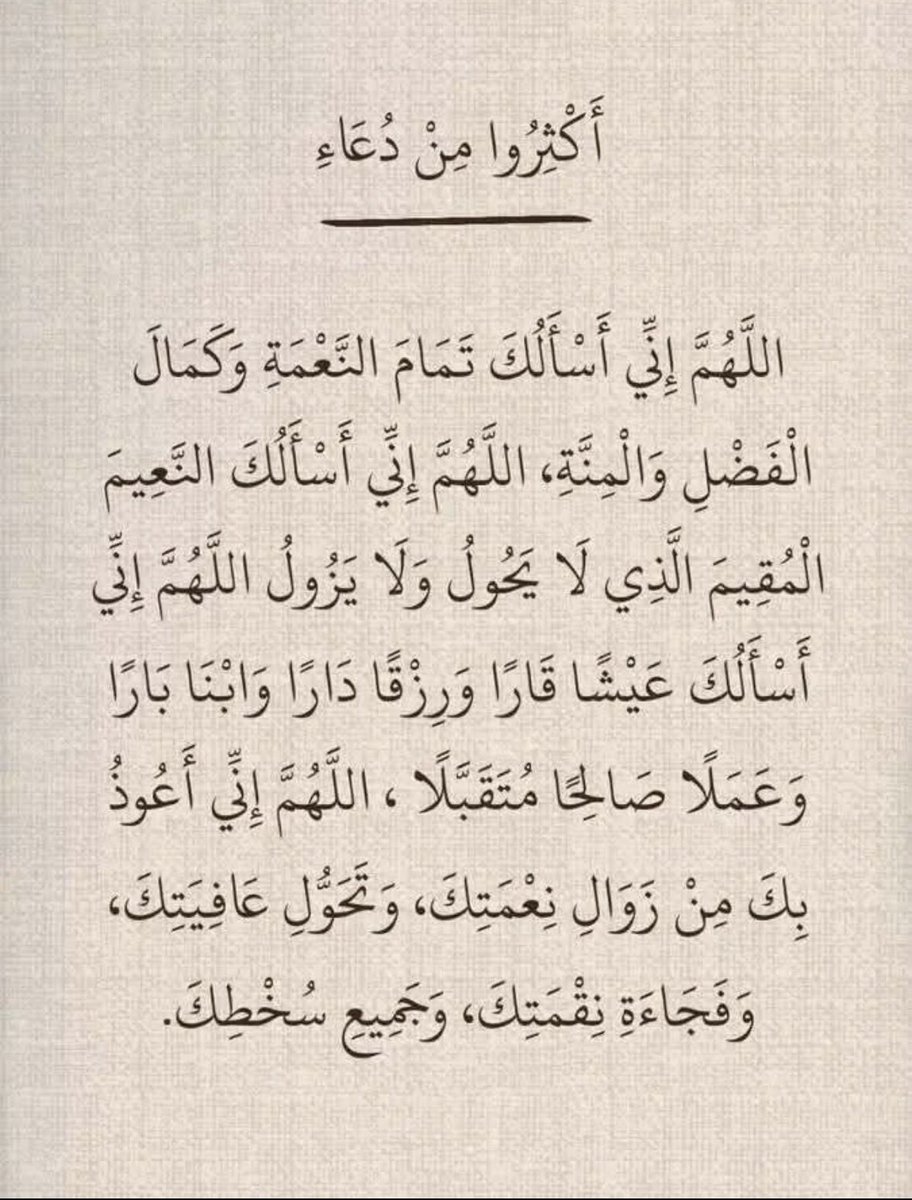 أَكْثِرُوا مِنْ دُعَاءِ
اللَّهُمَّ إِنِّي أَسْأَلُكَ تَمَامَ النَّعْمَةِ وَكَمَالَ
الْفَضْلِ وَالْمِنَّةِ، اللَّهُمَّ إِنِّي أَسْأَلُكَ النَّعِيمَ
الْمُقِيمَ الَّذِي لَا يَحُولُ وَلَا يَزُولُ اللَّهُمَّ إِنِّي
أَسْأَلُكَ عَيْشًا قَارًا وَرِزْقًا دَارًا وَابْنَا بَارًا
وَعَمَلًا صَالِحًا مُتَقَبَّلًا ، اللَّهُمَّ إِنِّي أَعُوذُ
بِكَ مِنْ زَوَالِ نِعْمَتِكَ، وَتَحَوُّلِ عَافِيَتِكَ،
وَفَجَاءَةِ نِقْمَتِكَ، وَجَمِيعِ سُخْطِكَ.